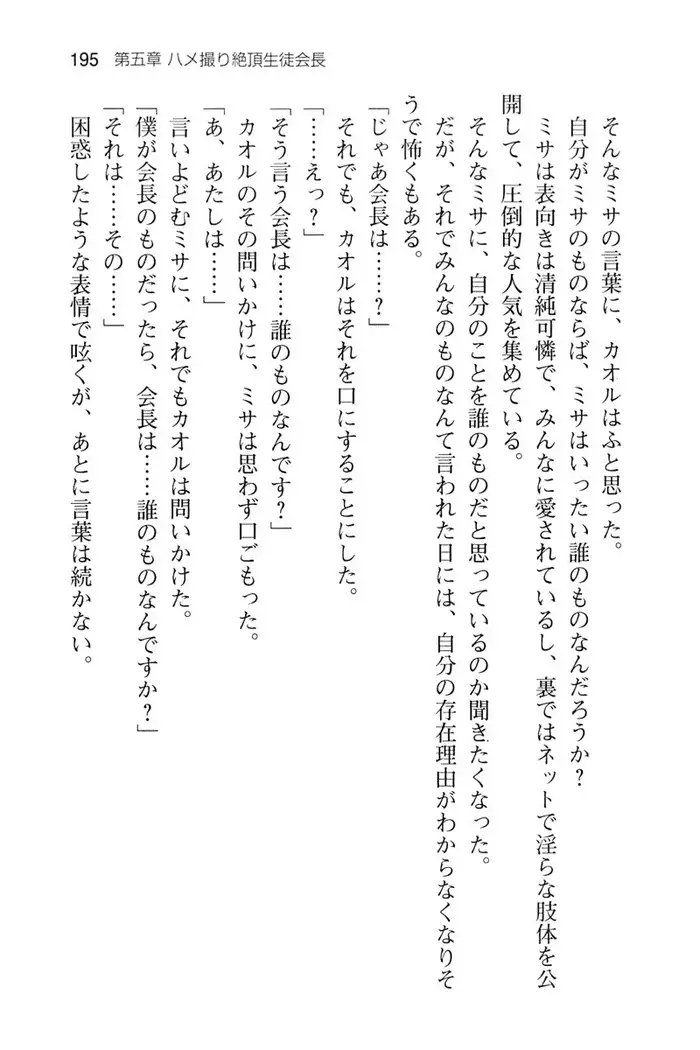 195 第五章 ハメ撮り絶頂生徒会長
そんなミサの言葉に、カオルはふと思った。
自分がミサのものならば、ミサはいったい誰のものなんだろうか?
ミサは表向きは清純可憐で、みんなに愛されているし、裏ではネットで淫らな肢体を公
開して、圧倒的な人気を集めている。
そんなミサに、自分のことを誰のものだと思っているのか聞きたくなった。
だが、それでみんなのものなんて言われた日には、自分の存在理由がわからなくなりそ
うで怖くもある。
「じゃあ会長は……?」
それでも、カオルはそれを口にすることにした。
「……えっ?」
「そう言う会長は……誰のものなんです?」
カオルのその問いかけに、ミサは思わず口ごもった。
「あ、あたしは……」
言いよどむミサに、それでもカオルは問いかけた。
「僕が会長のものだったら、会長は……誰のものなんですか?」
「それは……その……」
困惑したような表情で呟くが、あとに言葉は続かない。